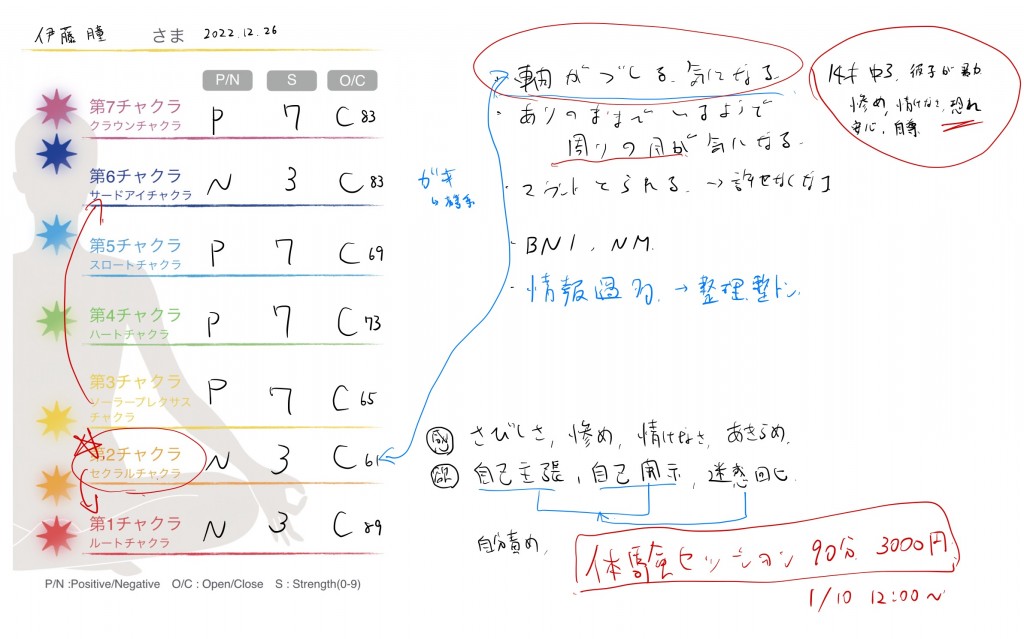 伊藤 瞳 さま 2022.12.26
P/N S O/C
第7チャクラ
クラウンチャクラ
P 7 C 83
第6チャクラ
サードアイチャクラ
N 3 C 83
第5チャクラ
スロートチャクラ
P 7 C 69
第4チャクラ
ハートチャクラ
P 7 C 73
第3チャクラ
ソーラープレクサス
チャクラ
P 7 C 65
第2チャクラ
セクラルチャクラ
N 3 C 61
第1チャクラ
ルートチャクラ
N 3 C 89
P/N :Positive/Negative O/C : Open/Close S : Strength(0-9)
・ 気になる
・ありのままでいるようで
周りの目が気になる.
・マウントとられる. →
・BNI, NM.
・情報過多. → 整理整トン.
惨め, 情けなさ, 恐れ
安心,
さびしさ, 惨め, 情けなさ, あきらめ.
自己主張, 自己開示, 迷惑回ヒ
自分責め,
体験セッション 90分 3000円
1/10 12:00〜